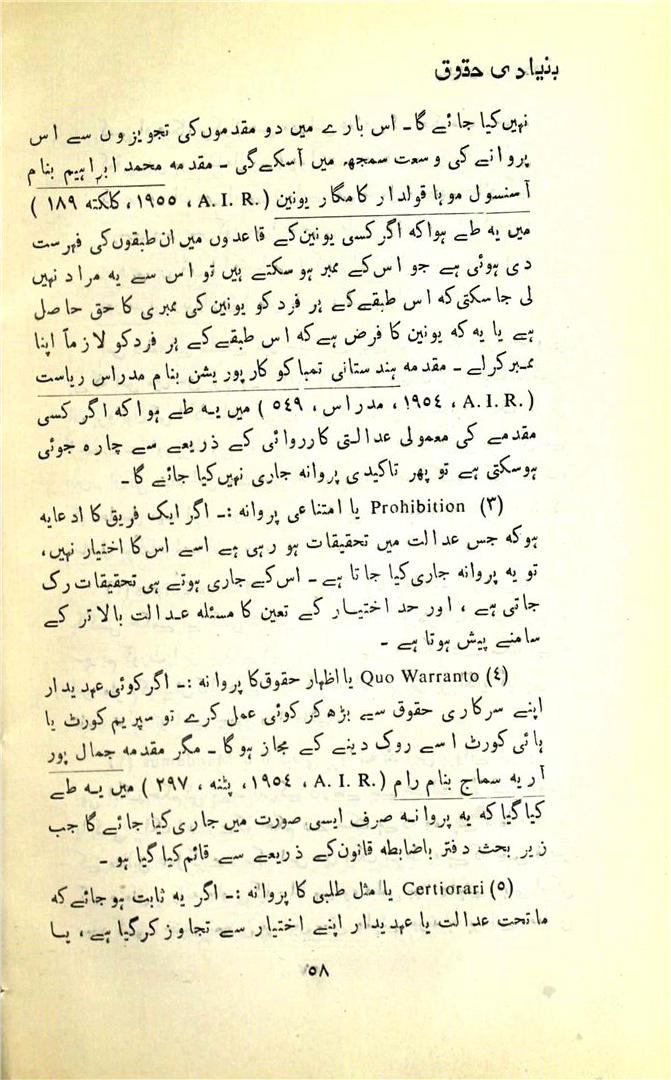 بنیادی حقوق
نہیں کیا جائے گا۔ اس بارے میں دو مقدموں کی تجویزوں سے اس
پروانے کی وسعت سمجھ میں آسکے گی ۔ مقدمہ محمد ابراہیم بنام
آسنسول موہا قولدار کامگار یونین (.A. I. R ، ١٩٥٥ ، کلکتہ ١٨٩ )
میں یہ طے ہوا کہ اگر کسی یونین کے قاعدوں میں ان طبقوں کی فہرست
دی ہوئی ہے جو اس کے ممبر ہو سکتے ہیں تو اس سے یہ مراد نہیں
لی جا سکتی کہ اس طبقے کے ہر فرد کو یونین کی ممبری کا حق حاصل
ہے یا یہ کہ یونین کا فرض ہے کہ اس طبقے کے ہر فرد کو لازماً اپنا
ممبر کر لے ۔ مقدمہ ہندستانی تمباکو کارپوریشن بنام مدراس ریاست
(.A. I. R ، ١٩٥٤ ، مدراس ، ٥٤٩ ) میں یہ طے ہوا کہ اگر کسی
مقدمے کی معمولی عدالتی کارروائی کے ذریعے سے چارہ جوئی
ہوسکتی ہے تو پھر تاکیدی پروانہ جاری نہیں کیا جائے گا۔
(٣) Prohibition یا امتناعی پروانہ :۔ اگر ایک فریق کا ادعا یہ
ہو کہ جس عدالت میں تحقیقات ہو رہی ہے اسے اس کا اختیار نہیں،
تو یہ پروانہ جاری کیا جاتا ہے ۔ اس کے جاری ہوتے ہی تحقیقات رک
جاتی ہے ، اور حد اختیار کے تعین کا مسئلہ عدالت بالا تر کے
سامنے پیش ہوتا ہے ۔
(٤) Quo Warranto یا اظہار حقوق کا پروانہ :۔ اگر کوئی عہدیدار
اپنے سرکاری حقوق سے بڑھ کر کوئی عمل کرے تو سپریم کورٹ یا
ہائی کورٹ اسے روک دینے کے مجاز ہوگا ۔ مگر مقدمہ جمال پور
آریہ سماج بنام رام (.A. I. R ، ١٩٥٤ ، پٹنہ ، ٢٩٧ ) میں یہ طے
کیا گیا کہ یہ پروانہ صرف ایسی صورت میں جاری کیا جائے گا جب
زیر بحث دفتر باضابطہ قانون کے ذریعے سے قائم کیا گیا ہو ۔
(٥) Certiorari یا مثل طلبی کا پروانہ :۔ اگر یہ ثابت ہو جائے کہ
ماتحت عدالت یا عہدیدار اپنے اختیار سے تجاوز کر گیا ہے ، یا
٥٨